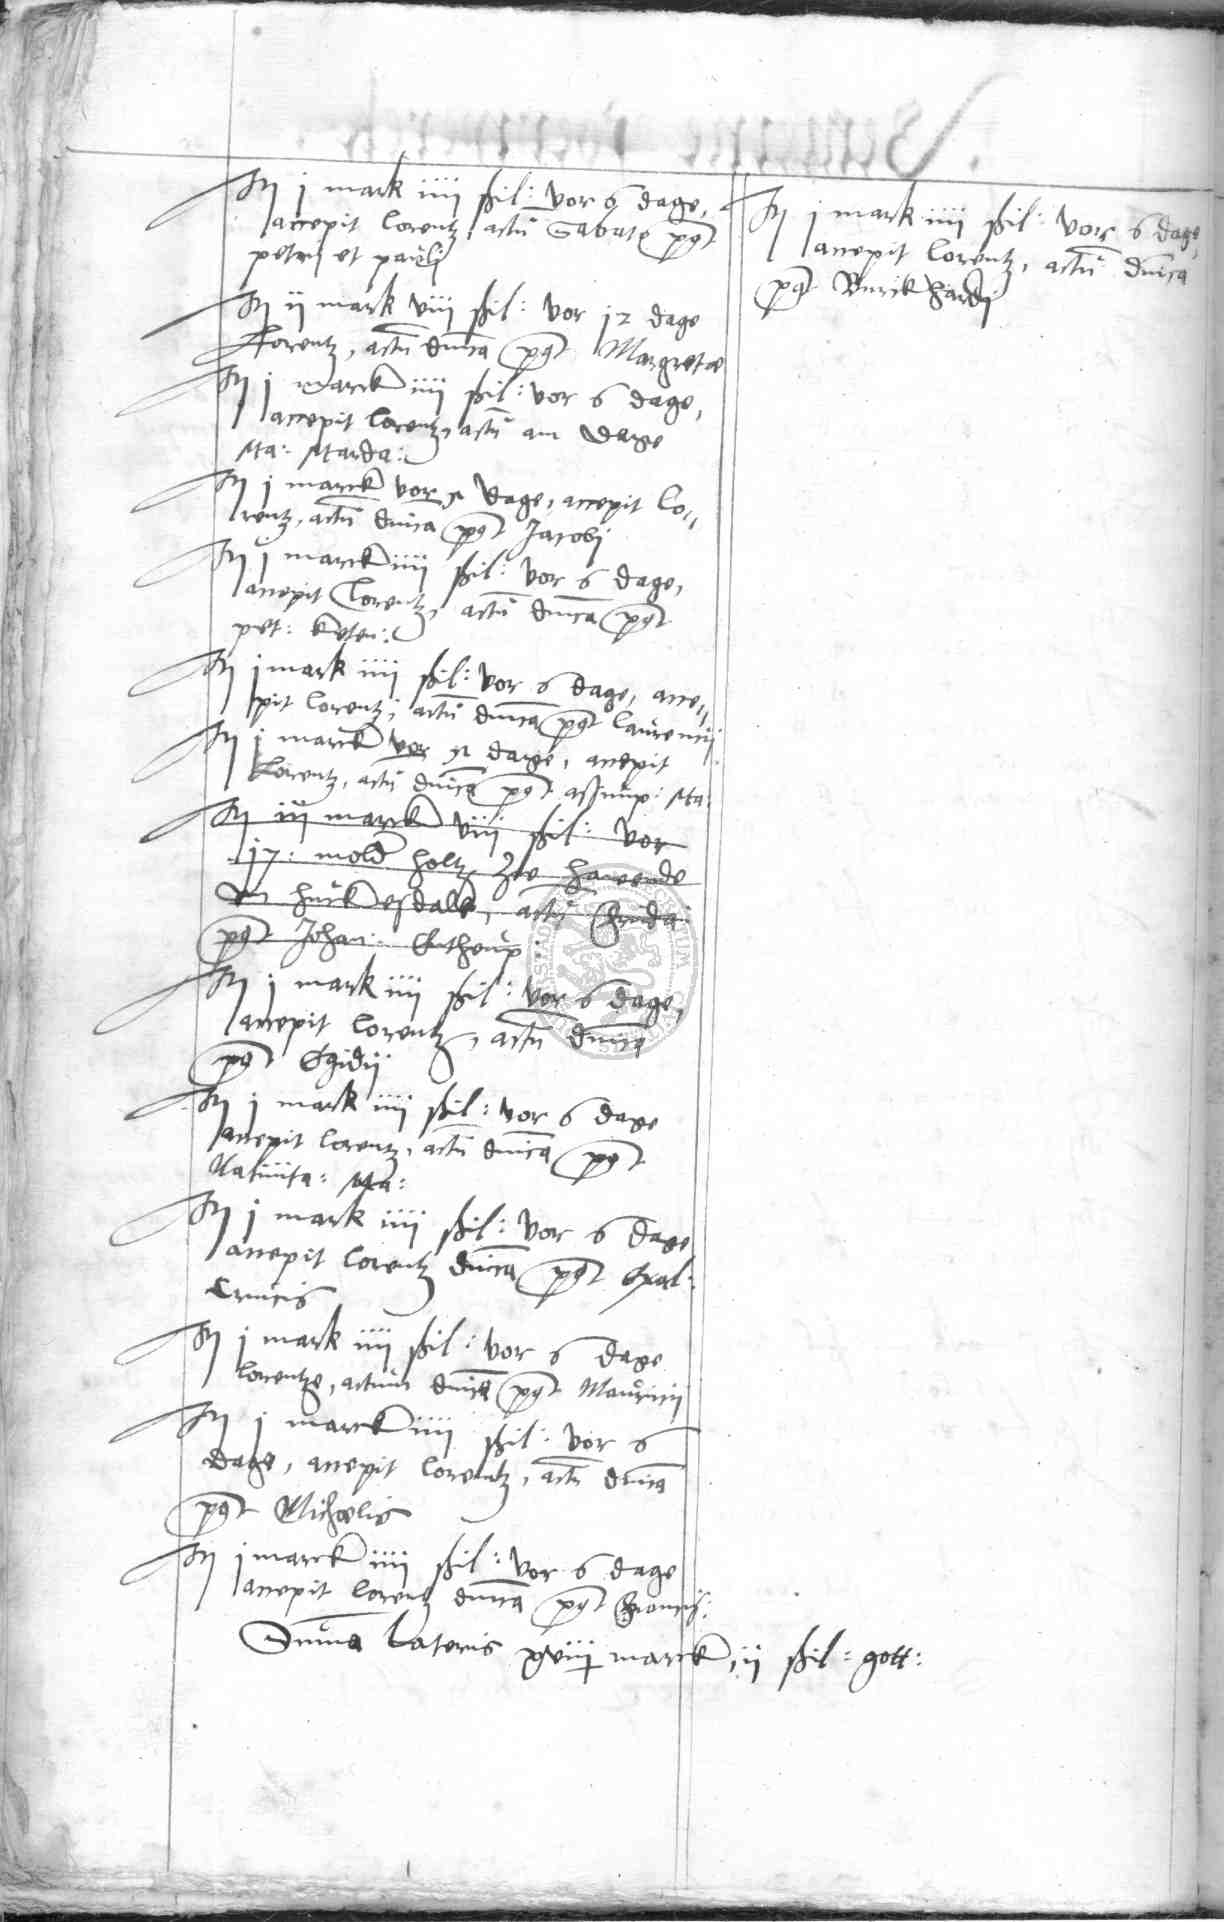 It j mark iiii ßil: vor 6 dage,
accepit Lorentz, actu Sabato post
petri et pauli
It ij mark viii ßil: vor 12 dage
Lorentz, actu dnica post Margretæ
It j marck iiii ßil: vor 6 dage,
accepit Lorentz, actu am dage
Ma: Magda:
It j marck vor 5 dage, accepit Lo-
rentz, actu dnica post Jacobi
It j marck iiii ßil: vor 6 dage,
accepit Lorentz, actu dnica post
pet: keten:
It j mark iiii ßil: vor 6 dage, acce-
pit Lorentz, actu dnica post Laurencij
It j marck vor 5 dage, accepit
Lorentz, actu dnica post assump: Ma:
It iij marck viii ßil: vor
17 mold holtz zo hawende
post Johan: Enthoup:
It j mark iiii ßil: vor 6 dage,
accepit Lorentz, actu dnica
post Egidij
It j mark iiii ßil: vor 6 dage
accepit Lorentz, actu dnica post
Natiuita: Ma:
It j mark iiii ßil: vor 6 dage
accepit Lorentz dnica post Exal:
Crucis
It j mark iiii ßil: vor 6 dage
Lorentze, actum dnica post Mauricij
It j marck iiii ßil: vor 6
dage, accepit Lorentz, actu dnica
post Michaelis
It j marck iiii ßil: vor 6 dage
accepit Lorentz dnica post Francis:
Suma Lateris xviij marck, ij ßil: gott:
It j mark iiii ßil: vor 6 dage,
accepit Lorentz, actu dnica
post Burckhardi